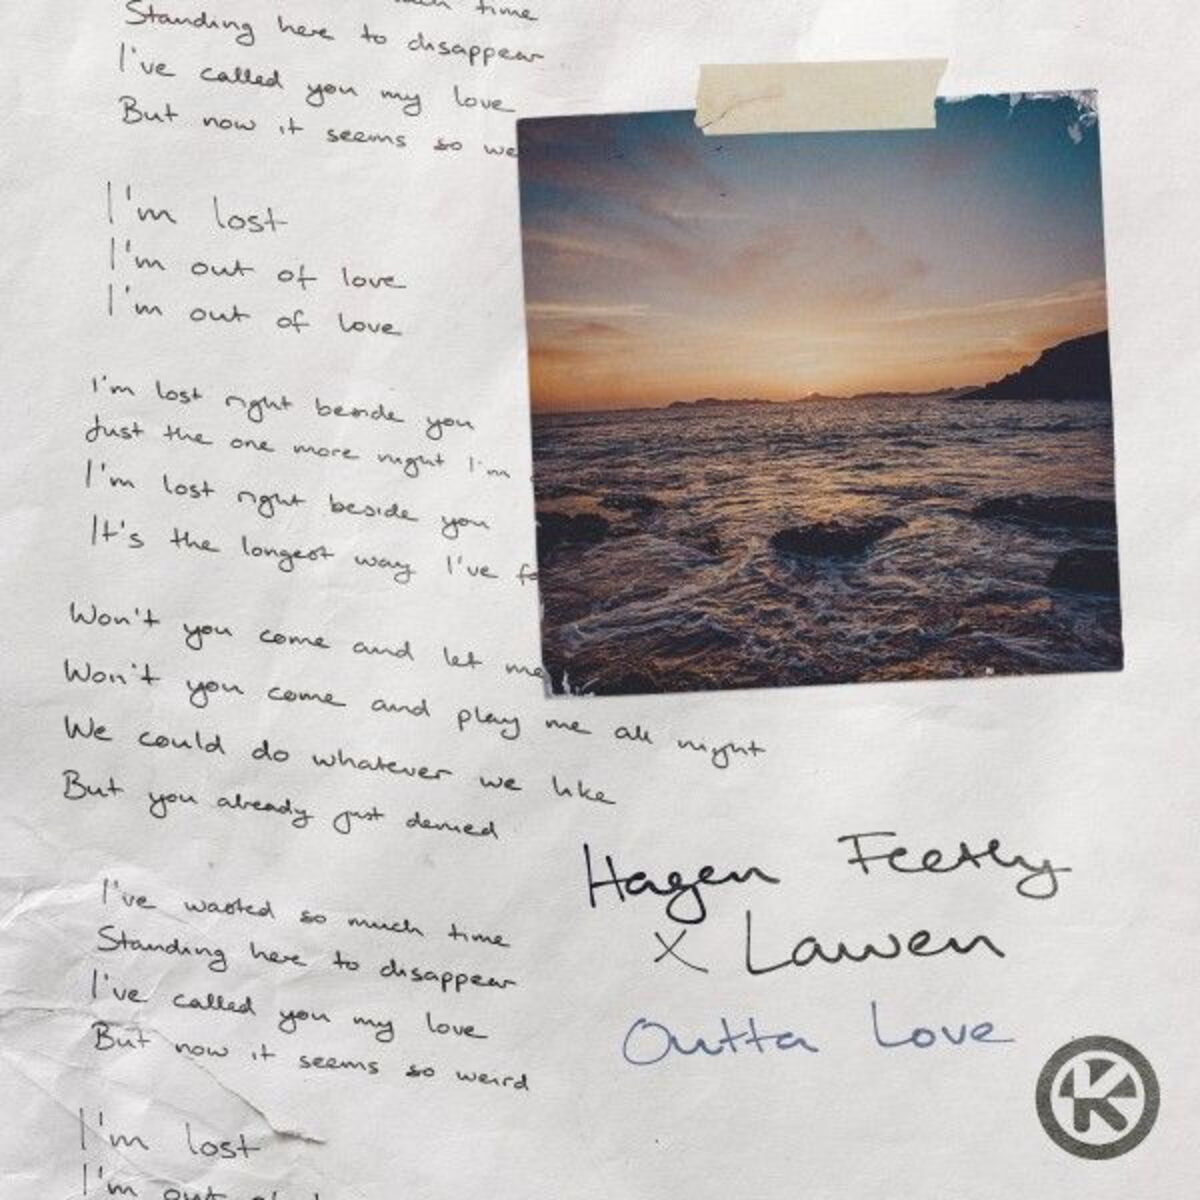 much time
Standing here to disappear
I've called you my love
But now it seems so we
I'm lost
I'm out of love
I'm out of love
I'm lost right beside you
Just the one more night I'm
I'm lost right beside you
It's the longest way I've f
Won't you come and let me
Won't you come and play me all night
We could do whatever we like
But you already just denied
I've wasted so much time
Standing here to disappear
I've called you my love
But now it seems so weird
I'm lost
I'm out of
Hagen Feetly
x Lawen
Outta Love
K